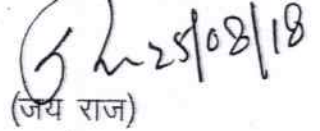 25/08/18
(जय राज)